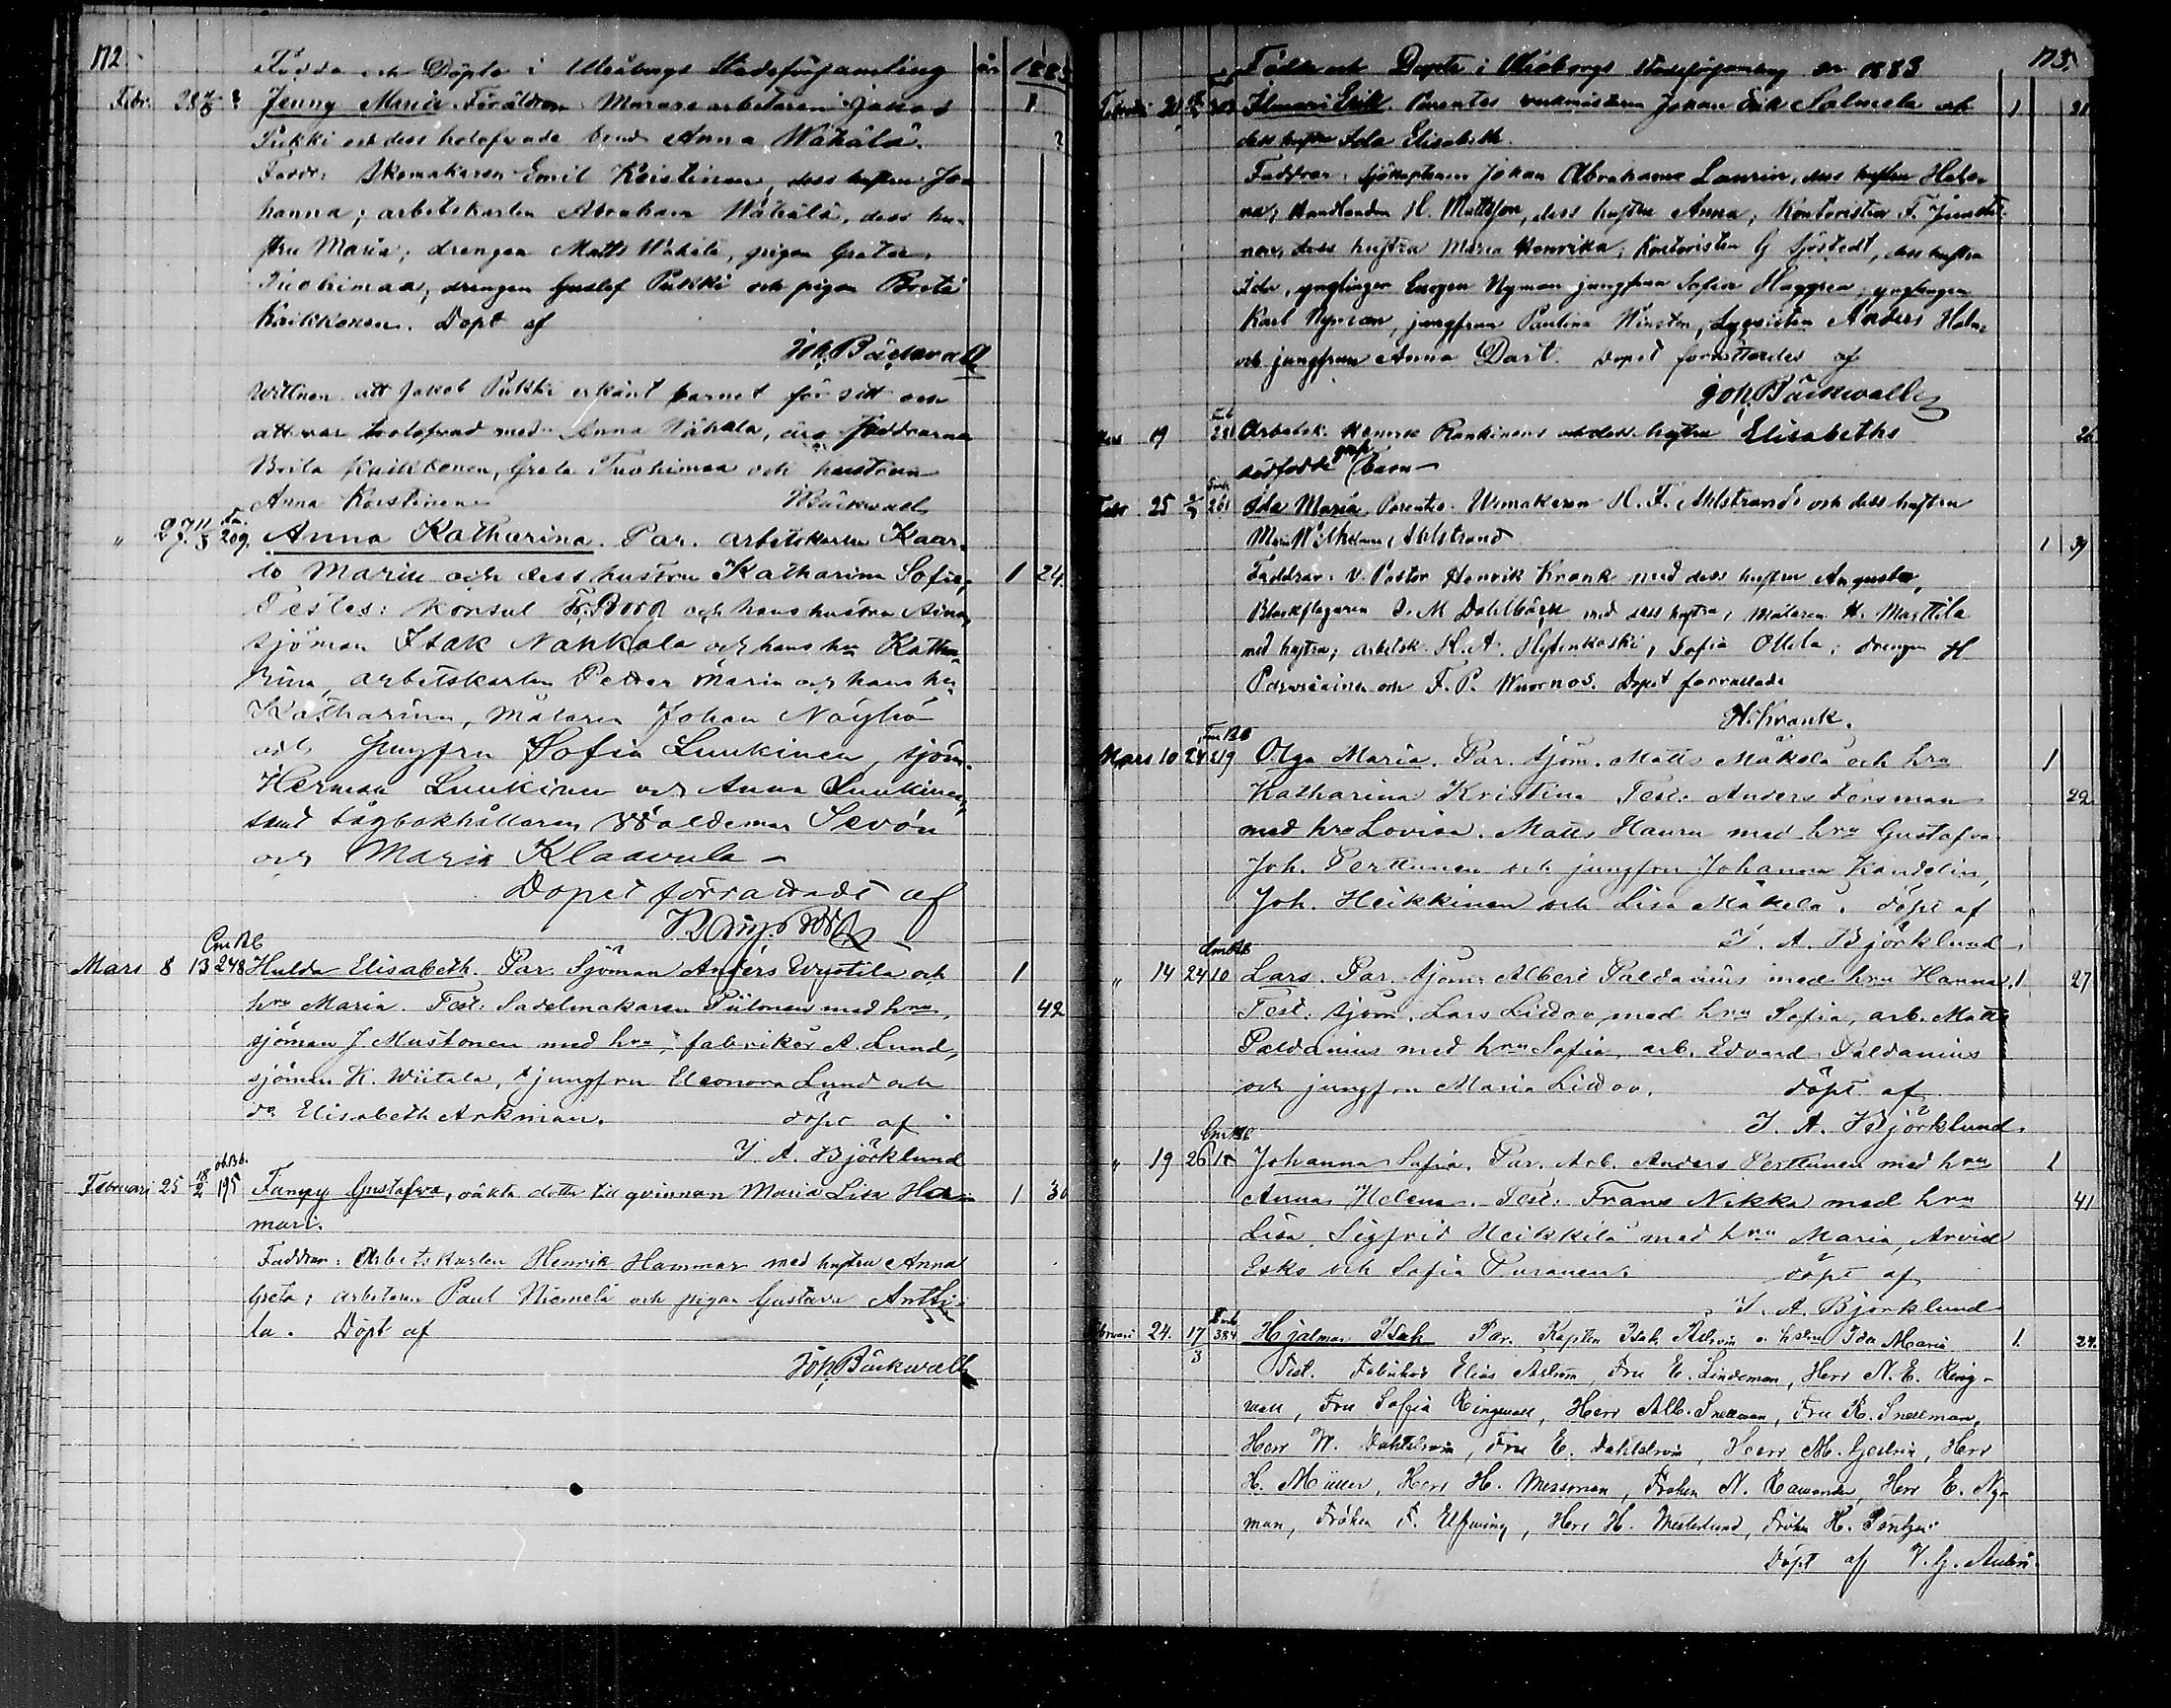 172
Födde och Döpte i Uleåborgs Stadsförsamling år 1883
Febr. 28 Jenny Maria. Föräldrar Murare arbetaren Jakob 1
Pukki och dess trolofvade Anna Wähälä.
Faddr: Skomakaren Emil Keistinen, dess hustru Jo-
hanna; arbetskarlen Abraham Wähälä, dess hu-
stru Maria; drengen Matts Wähälä, pigan Greta
Tuohimaa; drengen Gustaf Pukki och pigan Brita
Kaikkonen. Döpt af
Joh. Bäckwall
Wittnen att Jakob Pukki erkänt barnet för sitt och
att var trolofvad med Anna Wähälä, äro faddrarna
Brita Kaikkonen, Greta Tuohimaa och hustrun
Anna Keistinen Bäckwall
" 27 11/3 209. Anna Katharina. Par. arbetskarlen Kaar-
lo Maria och dess hustru Katharina Sofia, 1 24.
Testes: Konsul Fr. Borg och hans hustru Aina,
sjöman Isak Nahkala och hans hu Katha-
rina, arbetskarlen Petter Maria och hans hu
Katharina, Målaren Johan Näyhö
och Jungfru Sofia Luukinen, sjöm.
Herman Luukinen och Anna Luukinen,
samt tågbokhållaren Waldemar Sevón
och Maria Klaavula
Dopet förrättadt af
Mars 8 13 248 Hulda Elisabeth. Par. Sjöman Anders Wystila och 1
hru Maria. Test: Sadelmakaren Piitonen med hru, 42
sjöman J. Mustonen med hru, fabrikör A. Lund,
sjöman K. Wiitala, jungfru Eleonora Lund och
do Elisabeth Arkman. döpt af
J. A. Björklund
Februari 25 18/2 195 Fanny Gustafva, oäkta dotter till qvinnan Maria Lisa Ha- 1 30
mari.
Faddrar: Arbetskarlen Henrik Hammar med hustru Anna
Greta; arbetaren Paul Niemelä och pigan Gustava Antti-
la. Döpt af
Joh. Bäckwall
173.
Födde och Döpte i Uleåborgs stadsförsamling år 1883
Ilmari Erik. Parentes verkmästaren Johan Erik Salmela och 1 31
dess hustru Ida Elisabeth.
Faddrar: Sjökaptenen Johan Abraham Laurin, dess hustru Hele-
na; Handlanden H. Mattsson, dess hustru Anna; Kontoristen F. Junttinen,
dess hustru Maria Henrika; Kontoristen G Sjöstedt, dess hustru
Ida, ynglingen Eugen Nyman jungfrun Sofia Haggren, ynglingen
Karl Nyman, jungfrun Paulina Winsten, Anders Holm
och jungfrun Anna Dart. Dopet förrättades af
Joh. Bäckwall
Mars 19 Arbetsk. Henrik Rankinens och dess hustru Elisabeths 26
dödfödde barn
Febr 25 261 Ida Maria Parentes. Urmakaren H. F. Ahlstrand och dess hustru
Maria Wilhelmina Ahlstrand 1 39
Faddrar: V. Pastor Henrik Krank med dess hustru Augusta,
Bleckslagaren J. M. Dahlbäck med dess hustru; målaren H. Marttila
med hustru; arbetsk. H. A. Hytinkoski, Sofia Ollila; drengen H
och F. P. Wuornos. Dopet förrättade
H. Krank.
Mars 10 24 219 Olga Maria. Par. Sjöm. Matts Mäkelä och hru 1
Katharina Kristina Test: Anders Forsman 42
med hru Lovisa. Matts Hauru med hru Gustafva
Joh. Perttunen och jungfru Johanna Kandelin,
Joh. Heikkinen och Lisa Mäkelä. döpt af
J. A. Björklund
" 14 24 10 Lars. Par. sjöm. Albert Paldanius med hru Hanna. 1 27
Test: sjöm. Lars Liddov med hru Sofia, arb. Matts
Paldanius med hru Sofia, arb. Edvard Paldanius
och jungfru Maria Liddov. döpt af
J. A. Björklund.
" 19 26 Johanna Sofia. Par. Arb. Anders Perttunen med hru 1
Anna Helena. Test: Frans Nikka med hru 41
Lisa, Sigfrid Heikkilä med hru Maria, Arvid
Esko och Sofia Puranen. döpt af
J. A. Björklund
Februari 24. 17/3 384 Hjalmar Isak Par. Kapten Isak Åström o. hstru Ida Maria 1. 24.
Test. Fabrikör Elias Åström, Fru E. Lindeman, Herr N. E. Ring-
wall, Fru Sofia Ringwall, Herr Alb. Snellman, Fru R. Snellman,
Herr W. Dahlström, Fru E. Dahlström, Herr M. Herr
H. Müller, Herr H. Messman, Fröken N. Ravander, Herr E. Ny-
man, Fröken F. Elfving, Herr H. Westerlund, Fröken H.
Döpt af V. G.